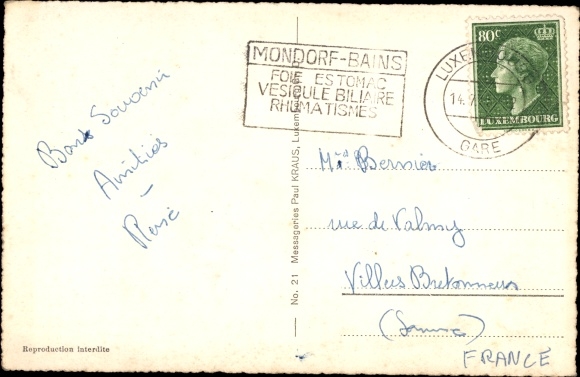 MONDORF-BAINS
FOIE ESTOMAC
VESICULE BILIAIRE
RHUMATISMES
80c
LUXEMBOURG
LUXEMBOURG
14.
GARE
Bons Souvenirs
Amitiés
No. 21 Messageries Paul KRAUS, Luxembourg
Bernier
rue de Valmy
Villers Bretonneux
(Somme)
FRANCE
Reproduction interdite